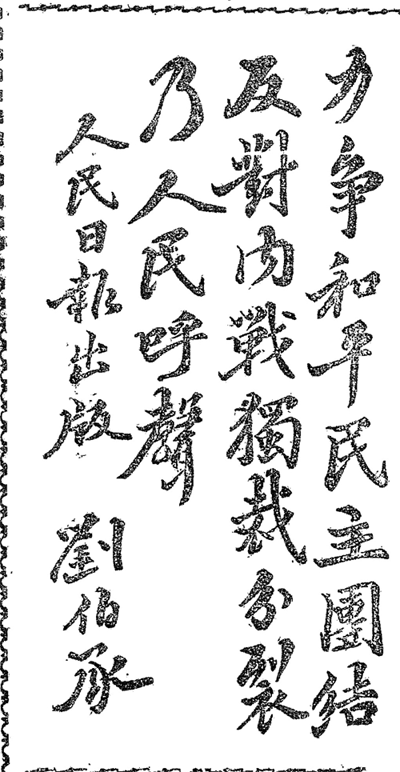 力争和平民主團结
反對内戰獨裁分裂
乃人民呼聲
人民日報出版 劉伯承